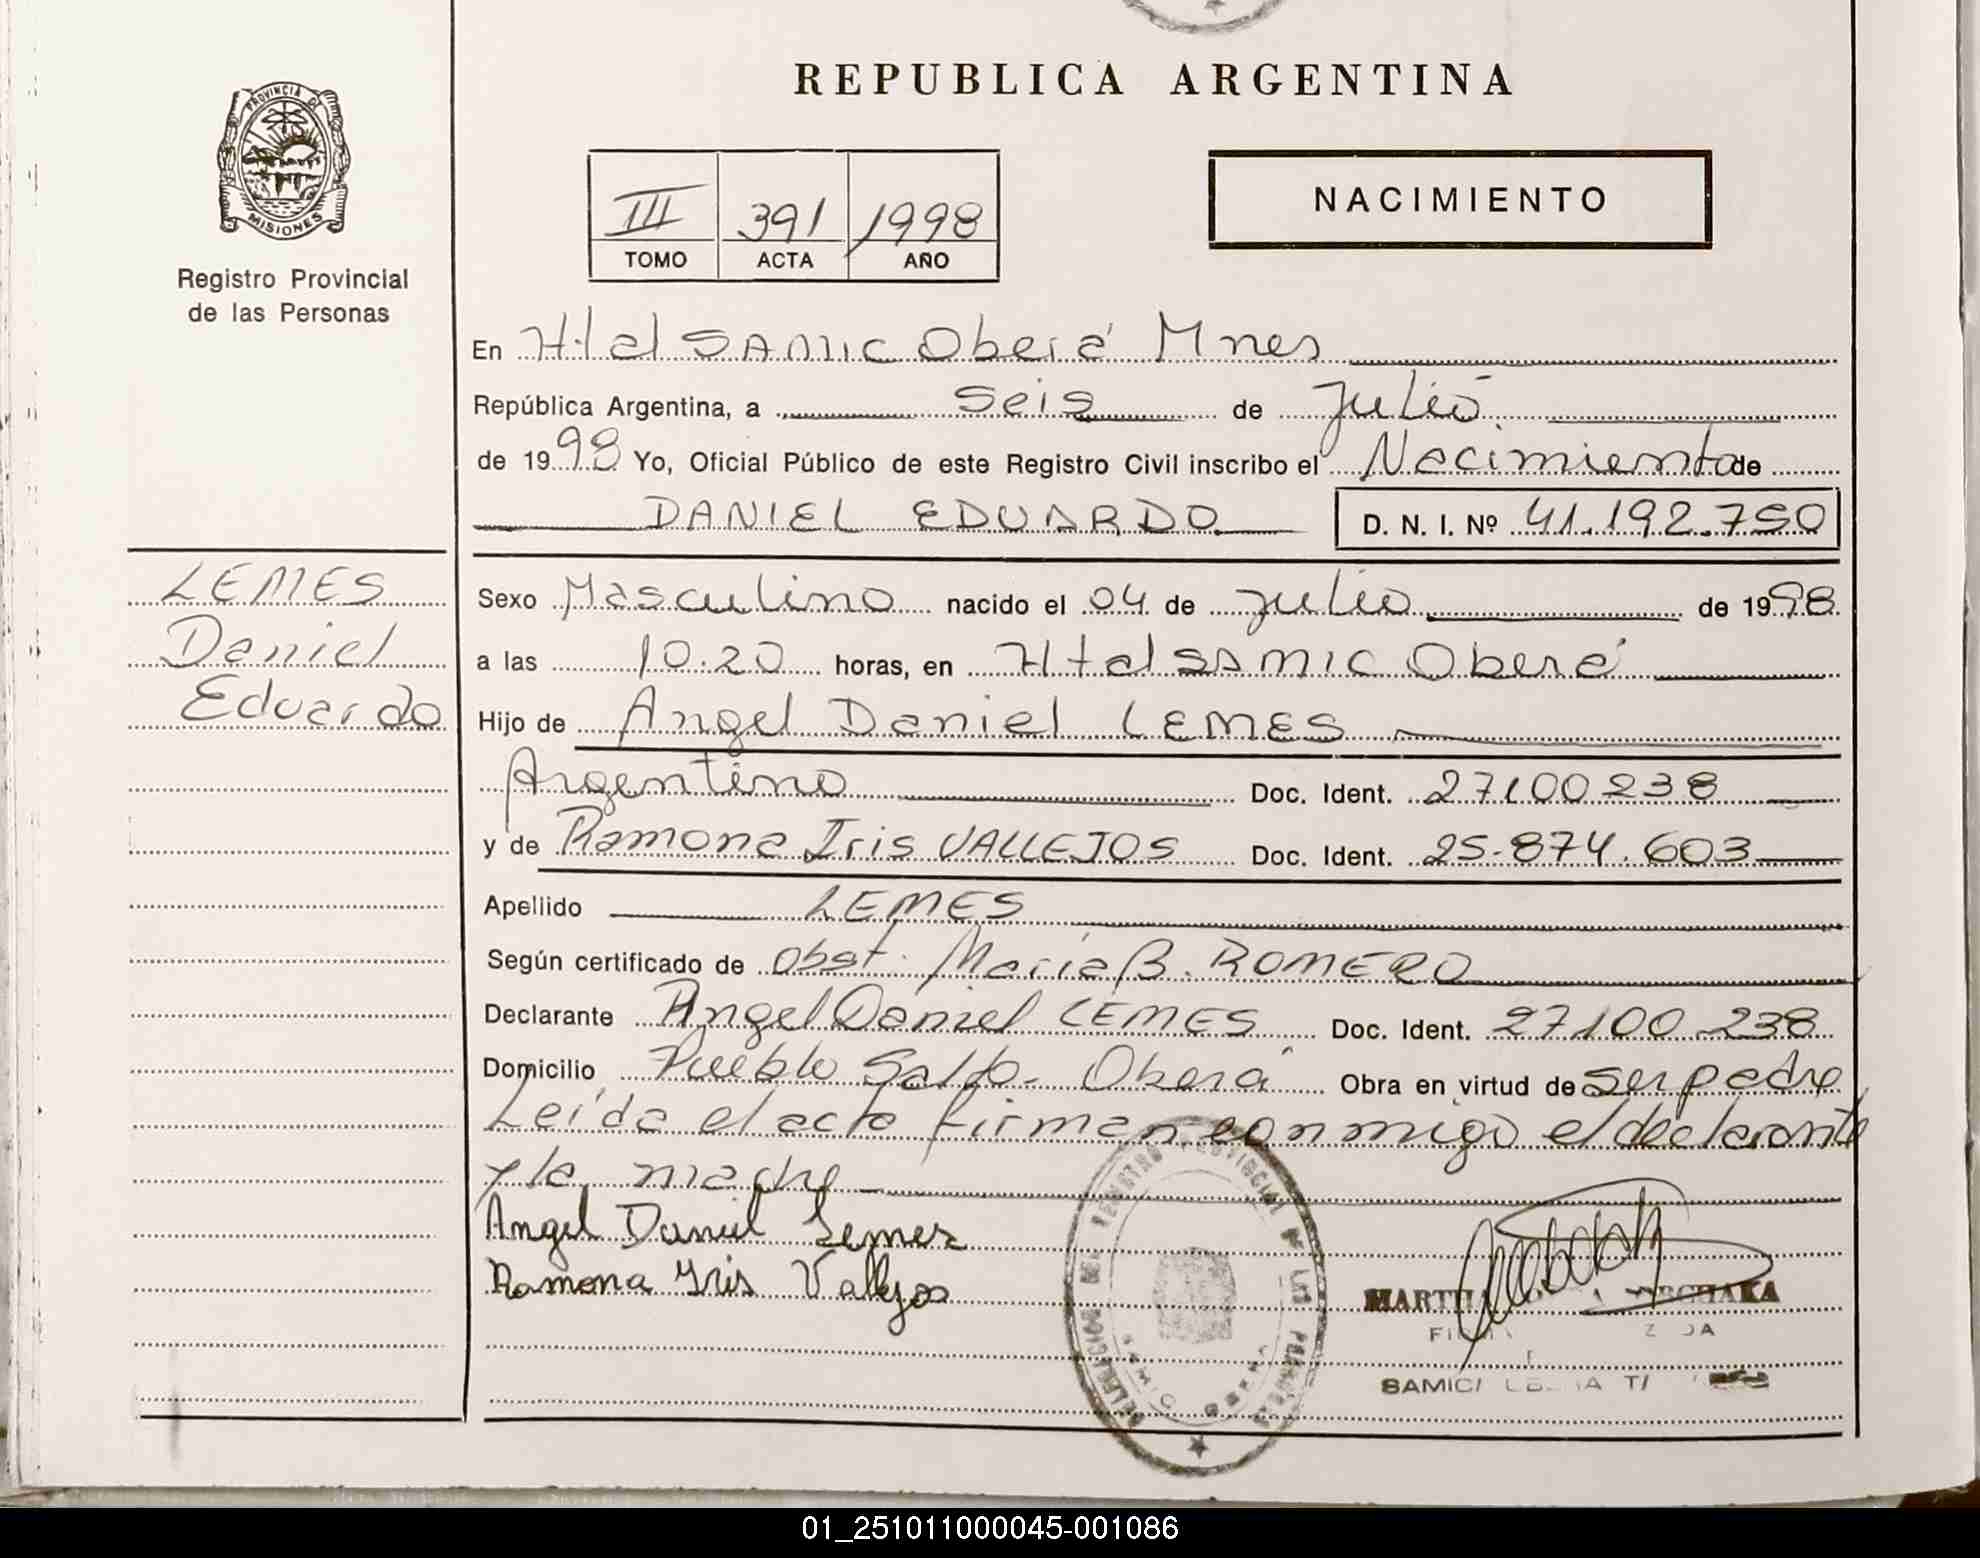 REPUBLICA ARGENTINA
PROVINCIA DE
MISIONES
Registro Provincial
de las Personas
III 391 1998
TOMO ACTA AÑO
NACIMIENTO
En Htal SAMIC Oberá Mnes
República Argentina, a seis de Julio
de 1998 Yo, Oficial Público de este Registro Civil inscribo el Nacimiento de
DANIEL EDUARDO D. N. I. Nº 41.192.750
LEMES
Daniel
Eduardo
Sexo Masculino nacido el 04 de julio de 1998
a las 10.20 horas, en Htal SAMIC Oberá
Hijo de Angel Daniel LEMES
Argentino Doc. Ident. 27.100.238
y de Ramona Iris VALLEJOS Doc. Ident. 25.874.603
Apellido LEMES
Según certificado de Obst. María B. ROMERO
Declarante Angel Daniel LEMES Doc. Ident. 27.100.238
Domicilio Pueblo Salto - Oberá Obra en virtud de ser padre
Leída el acta firman conmigo el declarante
y la madre
Angel Daniel Lemes
Ramona Iris Vallejos
DELEGACION DEL REGISTRO PROVINCIAL DE LAS PERSONAS
MARTHA
01_251011000045-001086